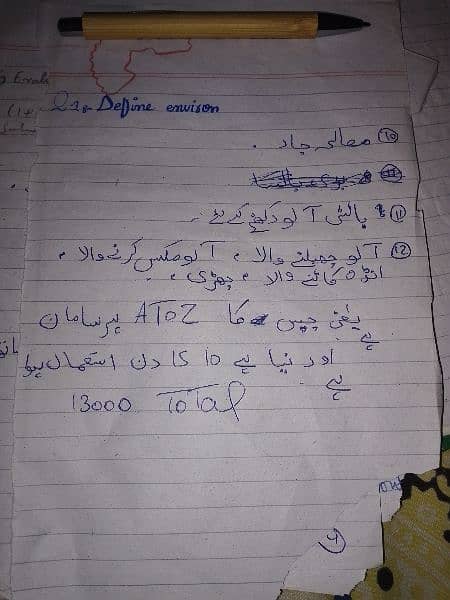 Q1:- Define envison
⑩ مصالحہ جار ۔
⑪ بالٹی آلو رکھنے کے لئے ۔
⑫ آلو چھیلنے والا ، آلو مکس کرنے والا ،
انڈہ کاٹنے والا ، چھڑی ، ۔
یعنی چپس کا AToZ ہر سامان
ہے
اور نیا ہے 10 کا دن استعمال ہوا
ہے
13000 ToTal